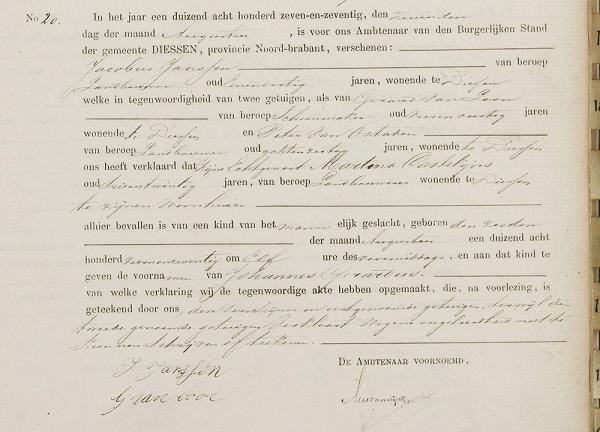 No 20. In het jaar een duizend acht honderd zeven-en-zeventig, den zevenden
dag der maand Augustus, is voor ons Ambtenaar van den Burgerlijken Stand
der gemeente DIESSEN, provincie Noord-brabant, verschenen:
Jacobus Janssen van beroep
Landbouwer oud eenendertig jaren, wonende te Diessen
welke in tegenwoordigheid van twee getuigen, als van Gerard van Loon
van beroep Schoenmaker oud jaren
wonende te Diessen en Peter van Ostaden
van beroep Landbouwer oud achtenzestig jaren, wonende te Diessen
ons heeft verklaard dat zijne Echtgenoot Martina Castelijns
oud jaren, van beroep Landbouwersse wonende te Diessen
te zijnen woonhuize
alhier bevallen is van een kind van het mannelijk geslacht, geboren den zesden
der maand Augustus een duizend acht
honderd zevenenzeventig om Elf ure des voormiddags, en aan dat kind te
geven de voornamen van Johannes Gerardus.
van welke verklaring wij de tegenwoordige akte hebben opgemaakt, die, na voorlezing, is
geteekend door ons, den Comparant en eerstgenoemde getuigen, terwijl den
tweede genoemde getuigen verklaart wegens ongeleerdheid niet te
kunnen Schrijven of teekenen.
DE AMBTENAAR VOORNOEMD,
J Janssen
G van Loon